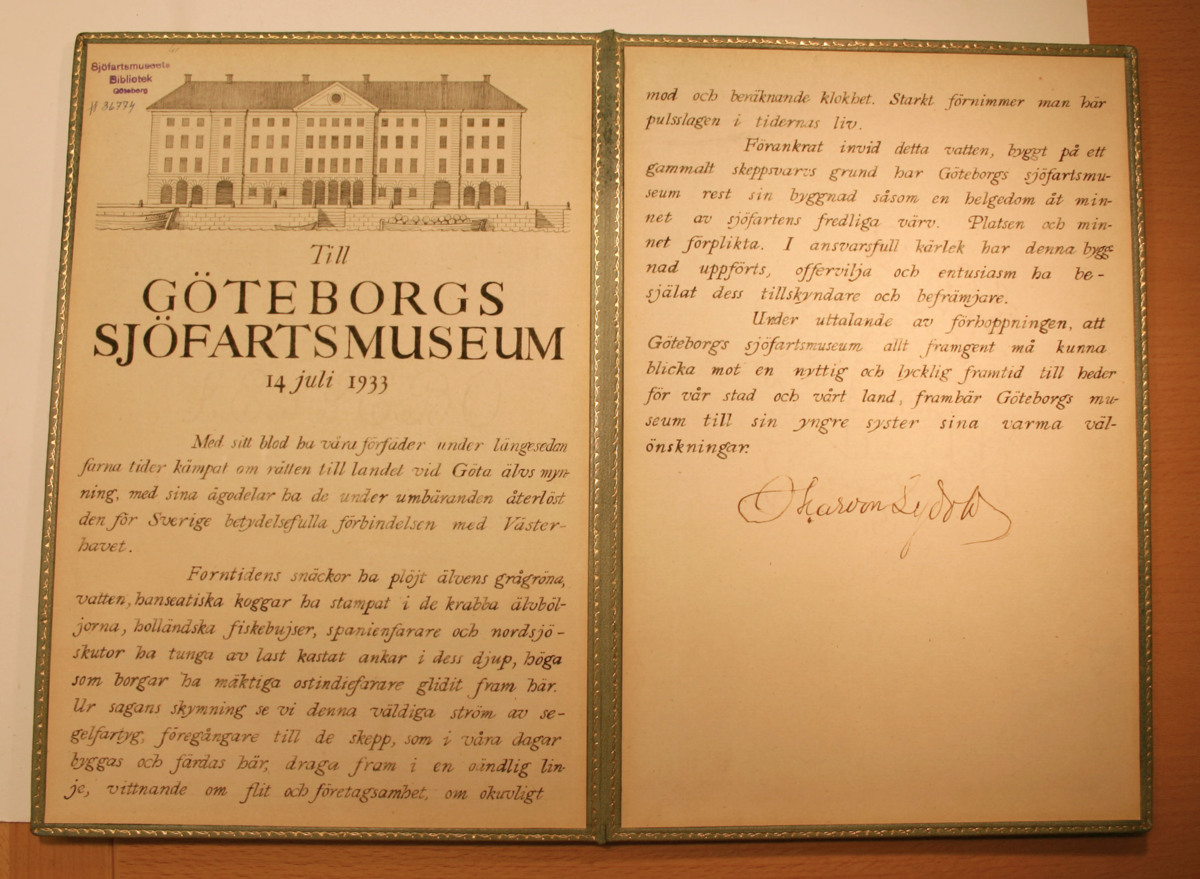 Sjöfartsmuseets
Bibliotek
Göteborg
H 36774
Till
GÖTEBORGS
SJÖFARTSMUSEUM
14 juli 1933
Med sitt blod ha våra förfäder under längesedan
farna tider kämpat om rätten till landet vid Göta älvs myn-
ning, med sina ägodelar ha de under umbäranden återlöst
den för Sverige betydelsefulla förbindelsen med Väster-
havet.
Forntidens snäckor ha plöjt älvens grågröna,
vatten, hanseatiska koggar ha stampat i de krabba älvböl-
jorna, holländska fiskebujser, spanienfarare och nordsjö-
skutor ha tunga av last kastat ankar i dess djup, höga
som borgar ha mäktiga ostindiefarare glidit fram här.
Ur sagans skymning se vi denna väldiga ström av se-
gelfartyg, föregångare till de skepp, som i våra dagar
byggas och färdas här, draga fram i en oändlig lin-
je, vittnande om flit och företagsamhet, om okuvligt
mod och beräknande klokhet. Starkt förnimmer man här
pulsslagen i tidernas liv.
Förankrat invid detta vatten, byggt på ett
gammalt skeppsvarvs grund har Göteborgs sjöfartsmu-
seum rest sin byggnad såsom en helgedom åt min-
net av sjöfartens fredliga värv. Platsen och min-
net förplikta. I ansvarsfull kärlek har denna bygg-
nad uppförts, offervilja och entusiasm ha be-
själat dess tillskyndare och befrämjare.
Under uttalande av förhoppningen, att
Göteborgs sjöfartsmuseum allt framgent må kunna
blicka mot en nyttig och lycklig framtid till heder
för vår stad och vårt land, frambär Göteborgs mu-
seum till sin yngre syster sina varma väl-
önskningar.